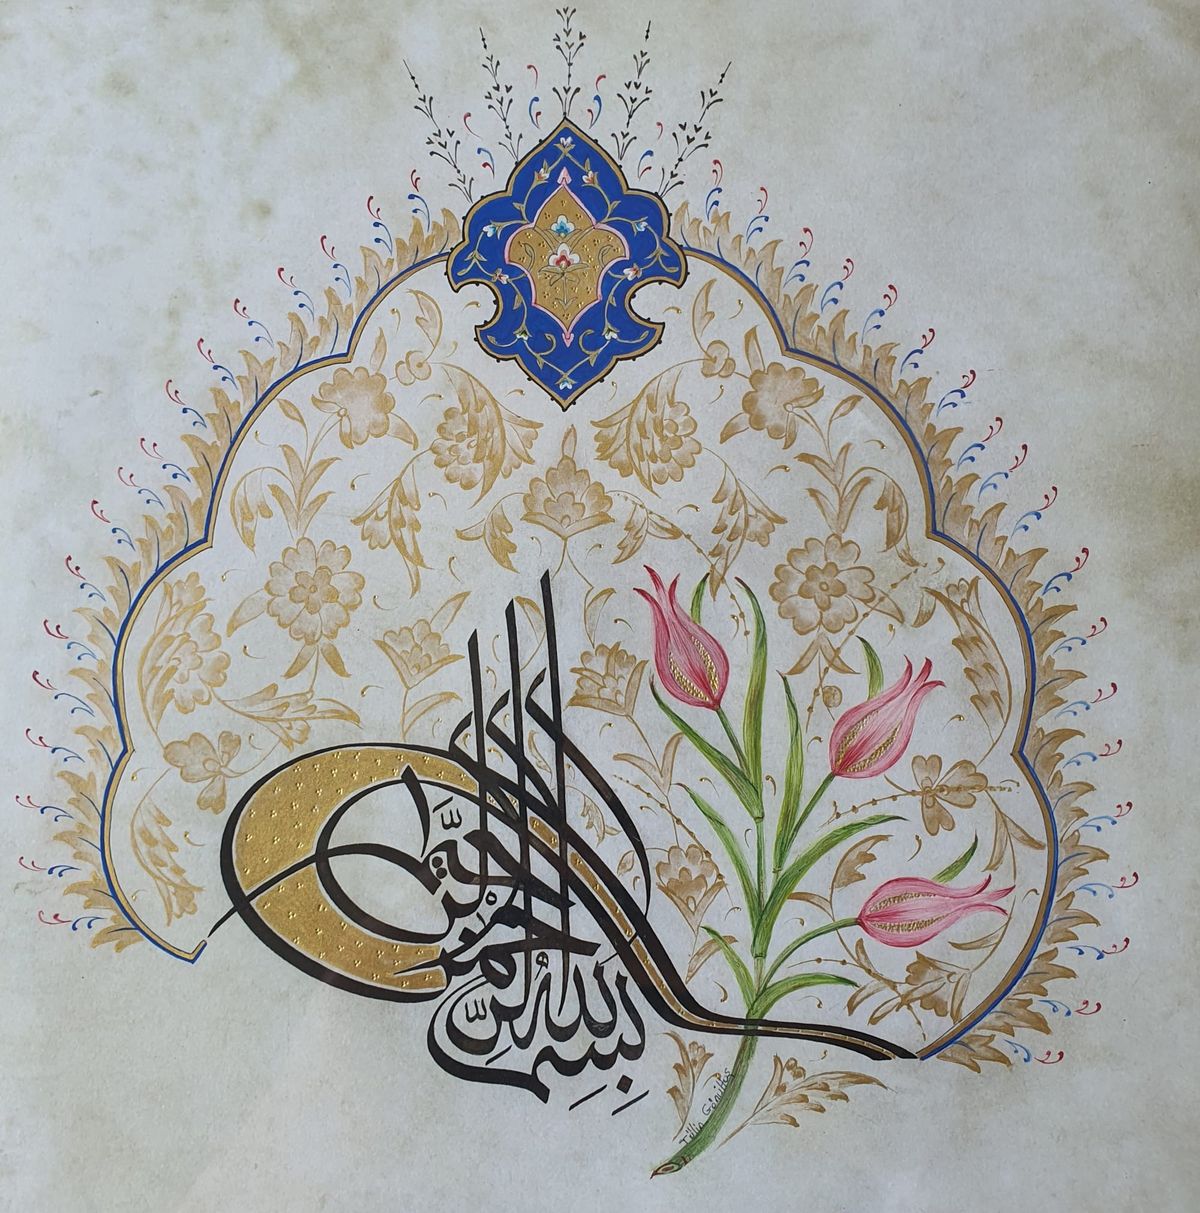 بِسْمِ اللهِ الرَّحْمٰنِ الرَّحِيمِ
Tülin Gönültaş